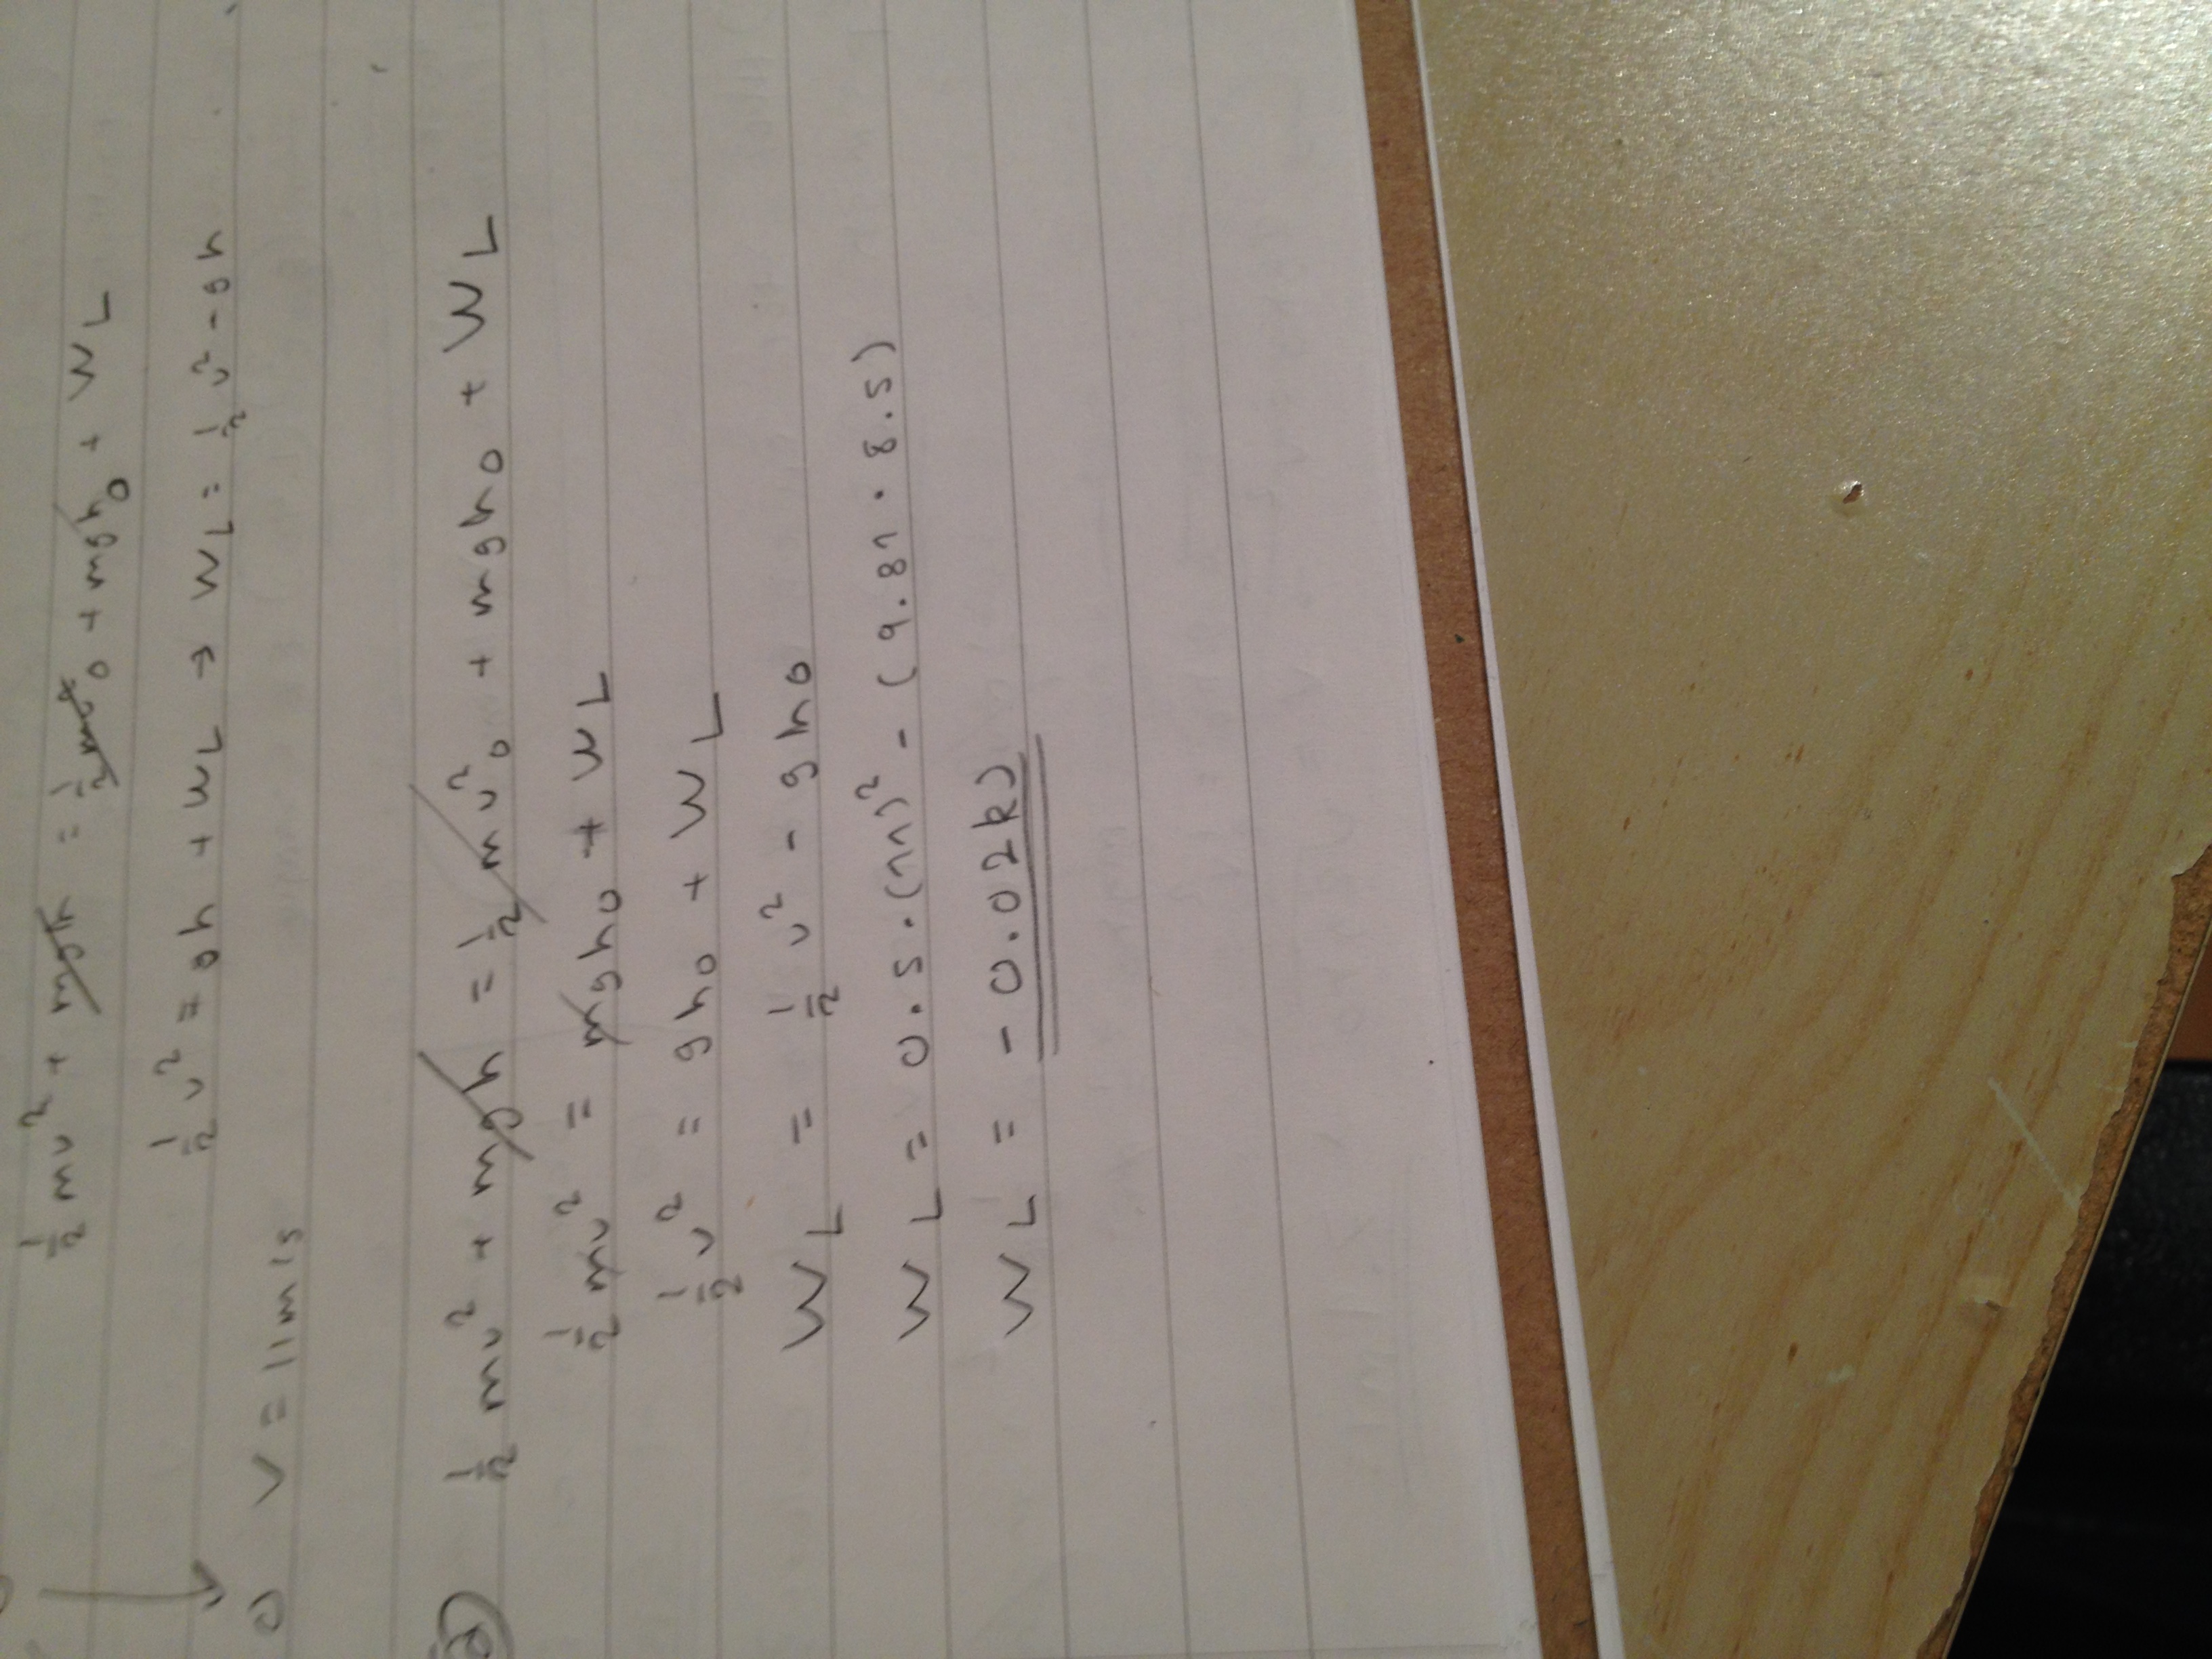 ½mv² + mgh = ½mv²₀ + mgh₀ + W_L
½v² = gh + W_L → W_L = ½v² - gh
0 v = 11m/s
a) ½mv² + mgh = ½mv₀² + mgh₀ + W_L
½mv² = mgh₀ + W_L
½v² = gh₀ + W_L
W_L = ½v² - gh₀
W_L = 0.5 · (11)² - (9.81 · 8.5)
W_L = -0.02kJ